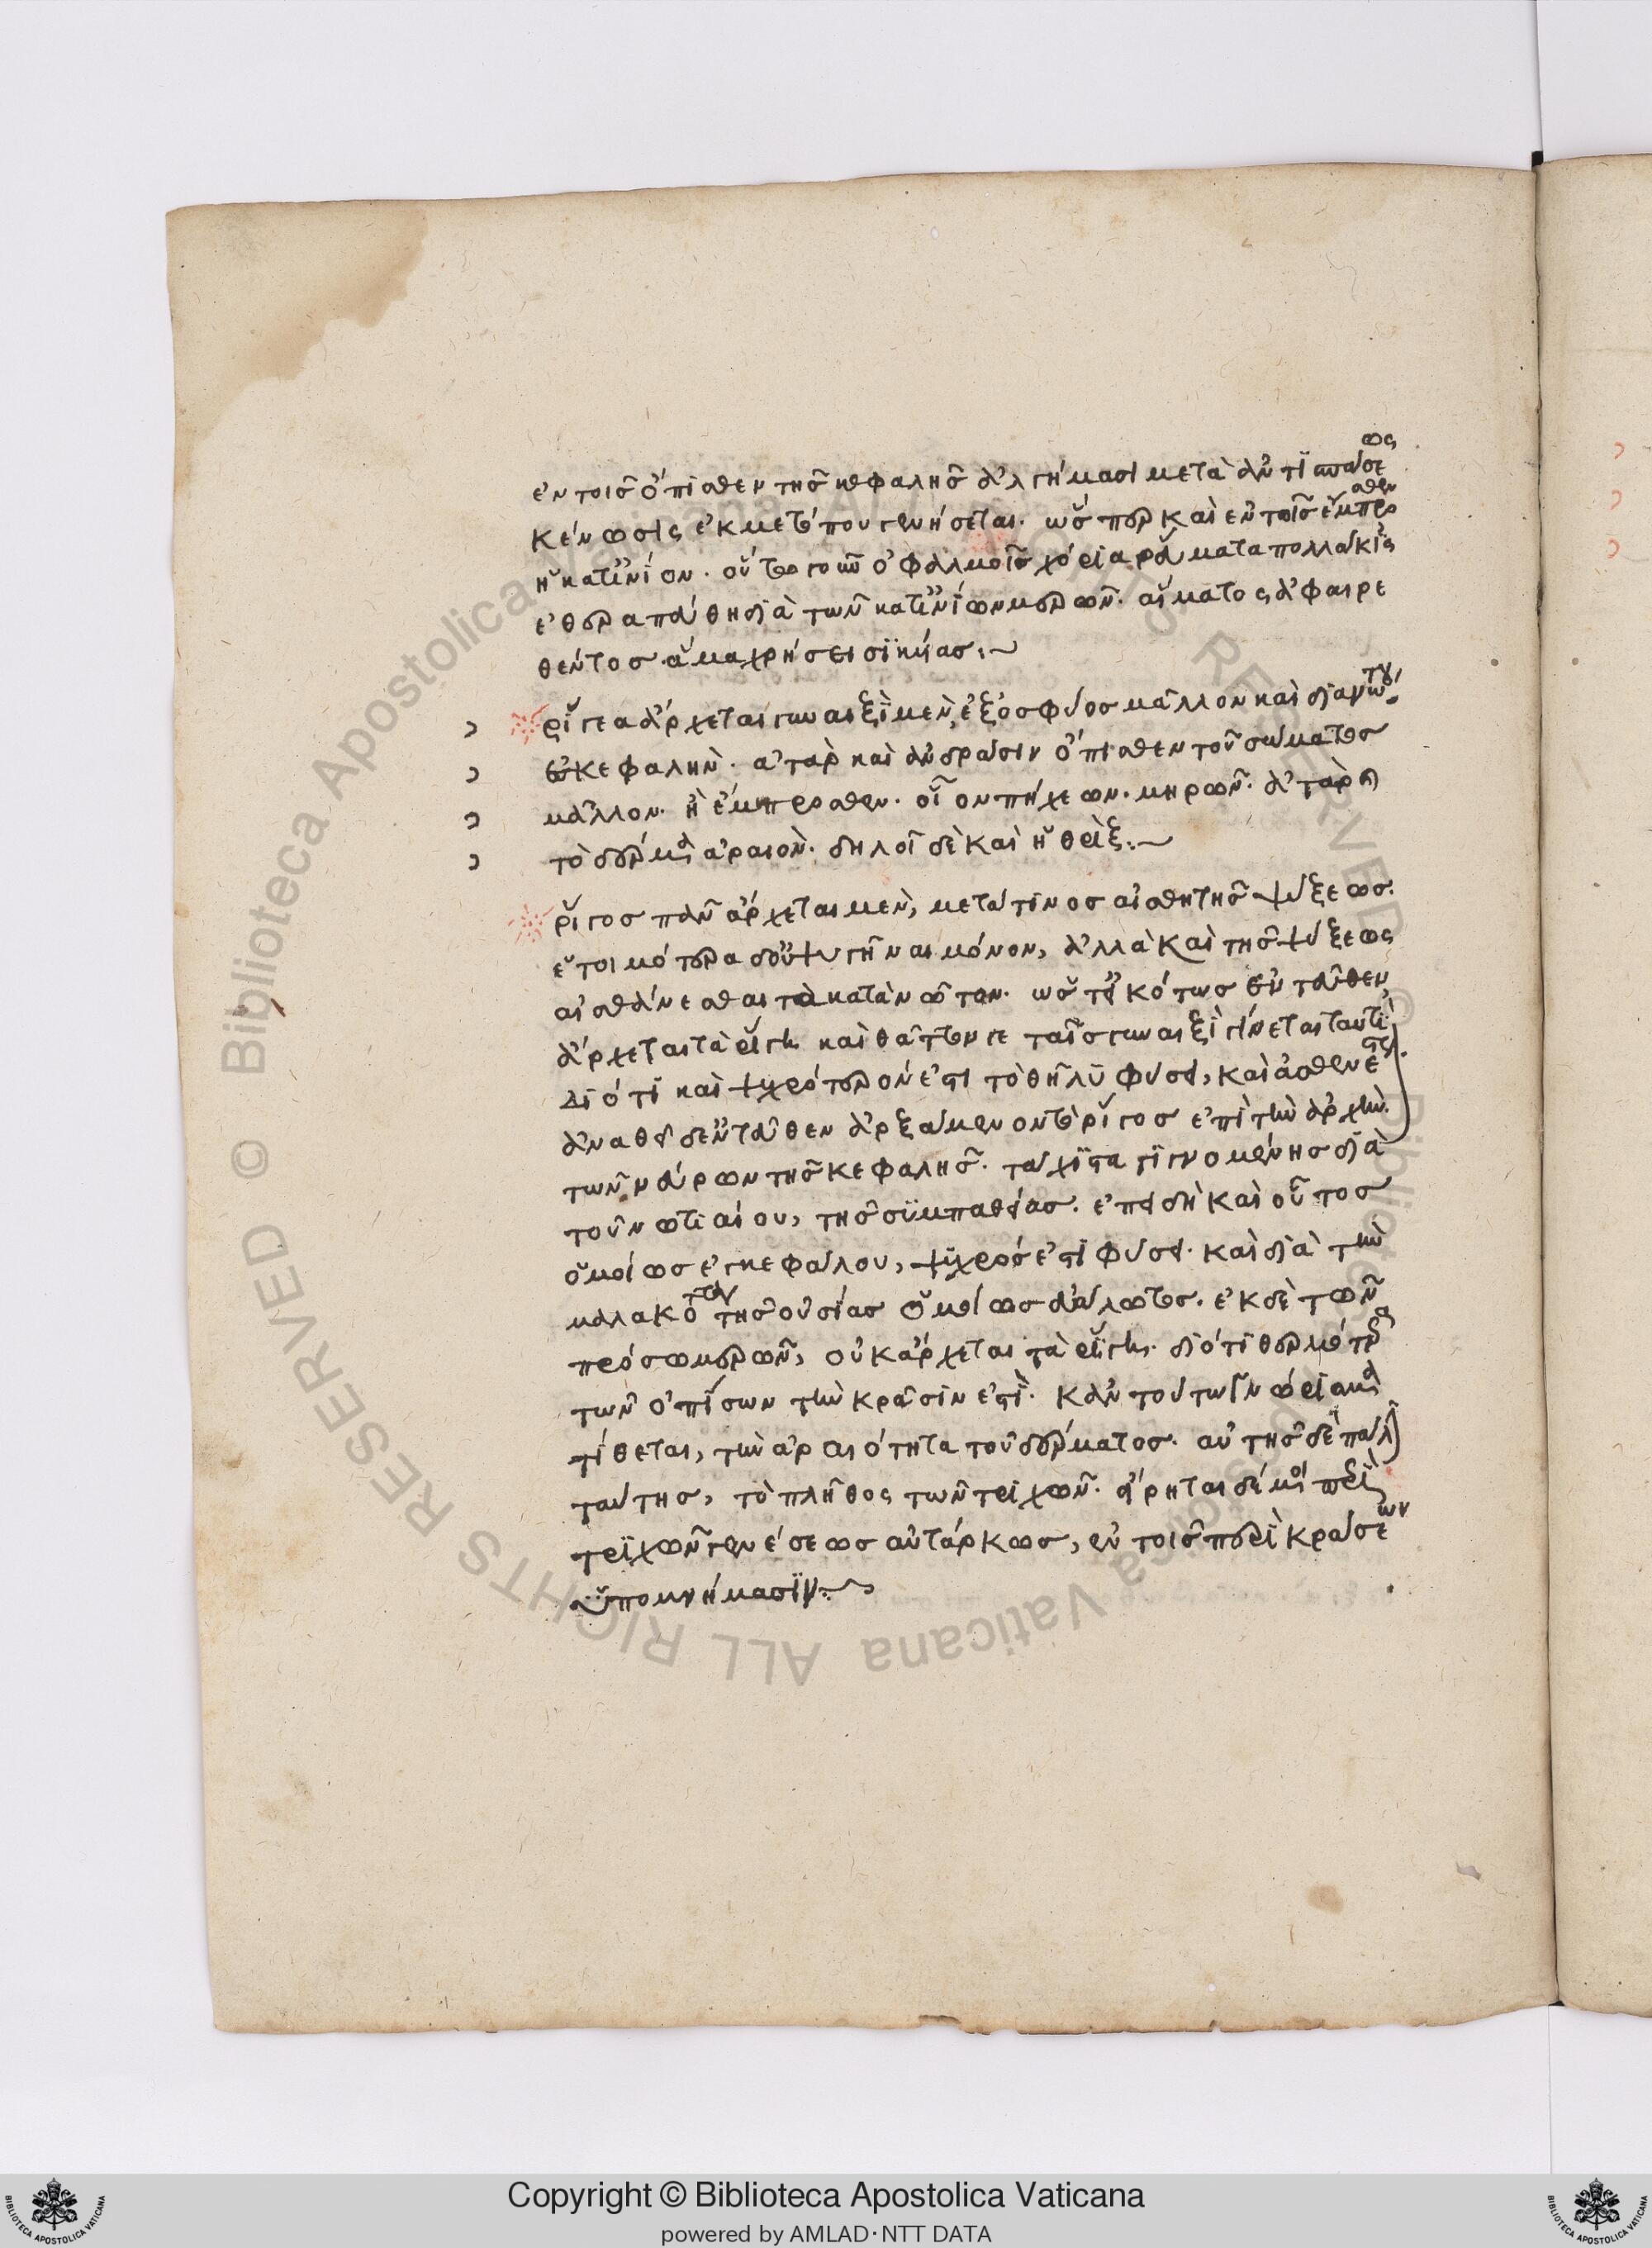 ἐν τοῖς ὄπισθεν τῆς κεφαλῆς ἀλγήμασι μετὰ ἀντισπάσεως
κένωσις ἐκ μετώπου γενήσεται. ὥσπερ καὶ ἐν τοῖς ἔμπροσθεν
ἡ κατ' ἰνίον. οὕτω γοῦν ὀφθαλμοῖς χρόνια ῥεύματα πολλάκις
ἐθεραπεύθη διὰ τῶν κατ' ἰνίον μερῶν. αἵματος ἀφαιρε
θέντος ἅμα χρήσει σικύας:~
ῥίγεα ἄρχεται γυναιξὶ μὲν, ἐξ ὀσφύος μᾶλλον καὶ διὰ νώτου
ἐς κεφαλήν. ἀτὰρ καὶ ἀνδράσιν ὄπισθεν τοῦ σώματος
μᾶλλον. ἢ ἔμπροσθεν. οἷον πήχεων. μηρῶν. ἀτὰρ καὶ
τὸ δέρμα ἀραιὸν. δηλοῖ δὲ καὶ ἡ θρίξ:~
ῥῖγος πᾶν ἄρχεται μὲν, μετά τινος αἰσθητῆς ψύξεως.
ἑτοιμότερα δ' οὐ ψυγῆναι μόνον, ἀλλὰ καὶ τῆς ψύξεως
αἰσθάνεσθαι τὰ κατὰ νῶτον. ὥστ' εἰκότως ἐντεῦθεν
ἄρχεται τὰ ῥίγη καὶ θᾶττόν γε ταῖς γυναιξὶ γίνεται ταυτὶ
διότι καὶ ψυχρότερόν ἐστι τὸ θῆλυ φύσει, καὶ ἀσθενέστερον.
ἀναθεῖ δ' ἐντεῦθεν ἀρξάμενον τὸ ῥῖγος ἐπὶ τὴν ἀρχὴν
τῶν νεύρων τῆς κεφαλῆς. τάχιστα γιγνομένης διὰ
τοῦ νωτιαίου, τῆς συμπαθείας. ἐπειδὴ καὶ οὗτος
ὁμοίως ἐγκεφάλου, ψυχρός ἐστι φύσει. καὶ διὰ τὴν
μαλακότητα τῆς οὐσίας ὁμοίως εὐάλωτος. ἐκ δὲ τῶν
πρόσω μερῶν, οὐκ ἄρχεται τὰ ῥίγη. διότι θερμότερα
τῶν ὀπίσω τὴν κρᾶσίν ἐστὶ. κἀν τούτων γνώρισμα
τίθεται, τὴν ἀραιότητα τοῦ δέρματος. αὐτῆς δὲ πάλιν
ταύτης, τὸ πλῆθος τῶν τριχῶν. εἴρηται δέ μοι περὶ
τριχῶν γενέσεως αὐτάρκως, ἐν τοῖς περὶ κράσεων
ὑπομνήμασιν:~
Copyright © Biblioteca Apostolica Vaticana
powered by AMLAD·NTT DATA